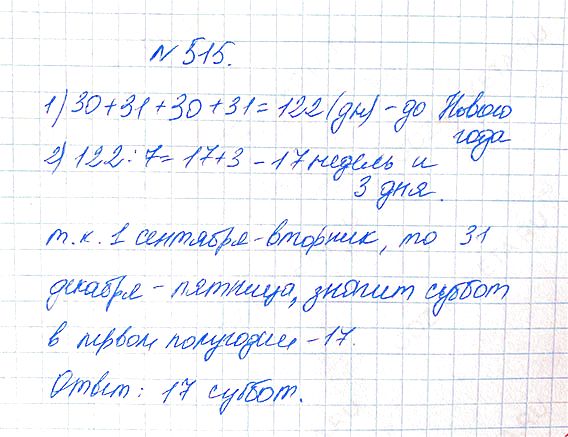 № 515.
1) 30+31+30+31=122 (дн) - до Нового
года
2) 122:7=17+3 - 17 недель и
3 дня.
т.к. 1 сентября - вторник, то 31
декабря - пятница, значит суббот
в первом полугодии - 17.
Ответ: 17 суббот.